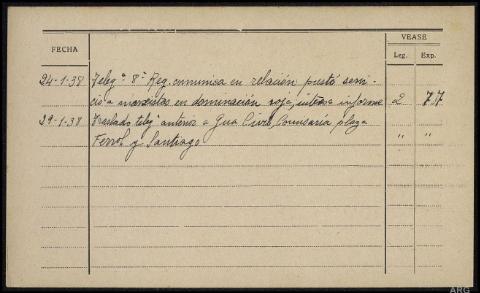 VEASE
FECHA
Leg. Exp.
24-1-38 Telegº 8ª Reg. comunica en relación prestó servi-
cio a marxistas en dominación roja, interesa informe 2 77
29-1-38 Traslado telegº anterior a Gua Civil, Comisaría plaza " "
Ferrol y Santiago
ARG